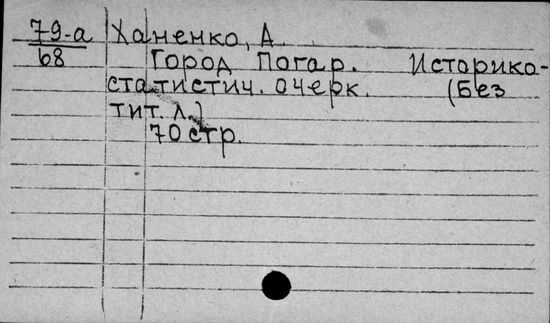 79-а Ханенко, А
68
Город Погар. Историко-
статистич. очерк. (Без
тит. л.)
70 стр.